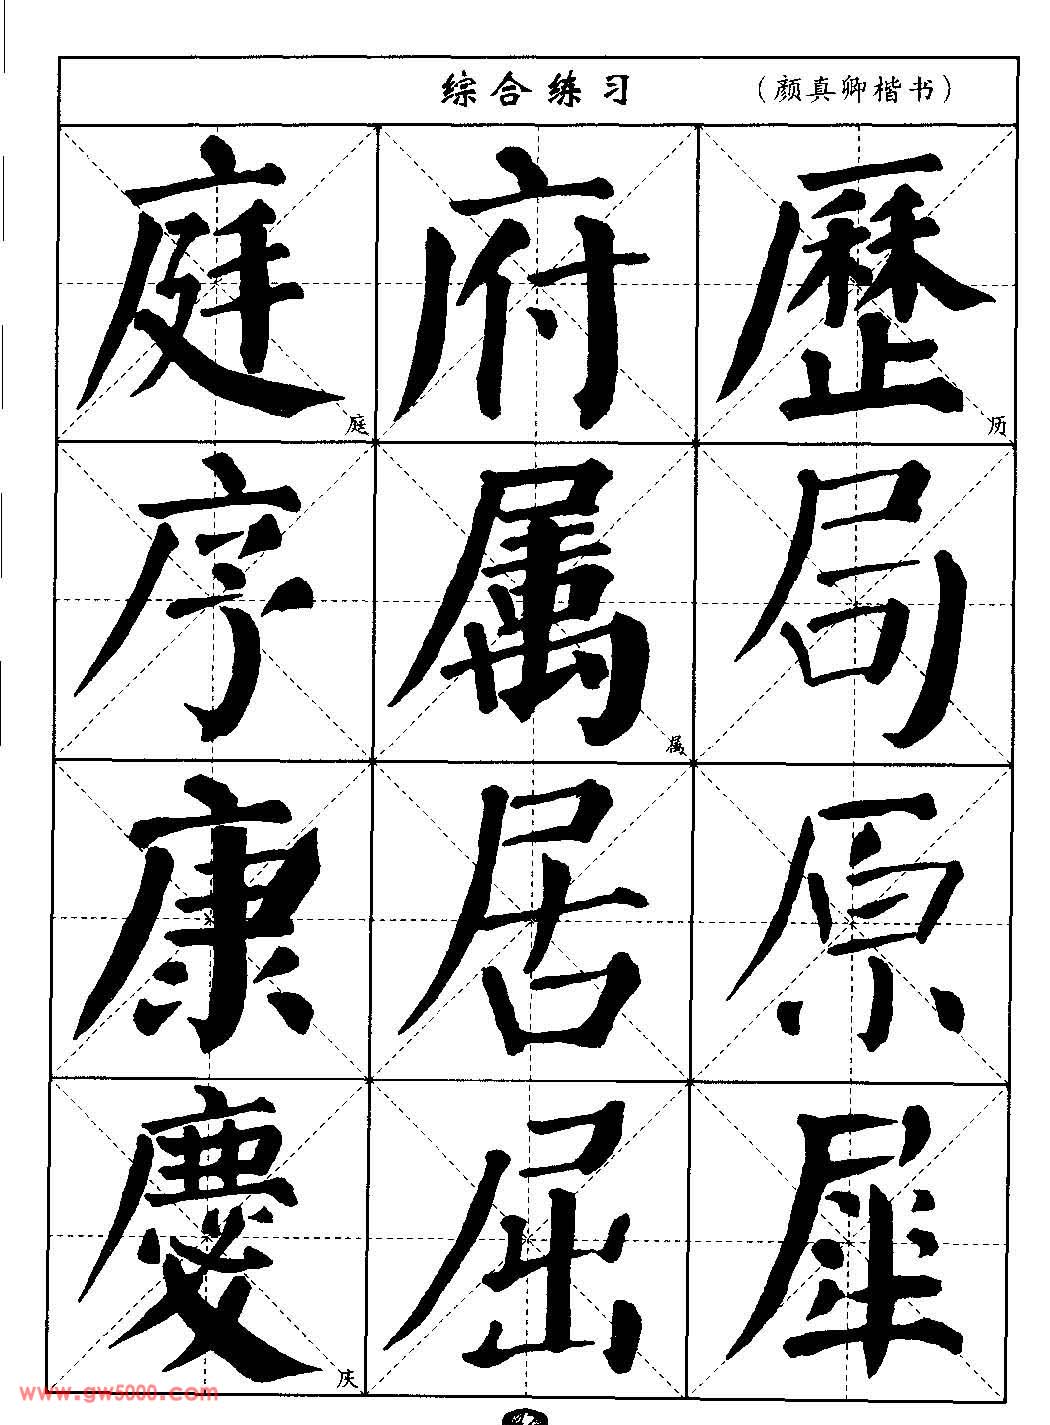 综合练习 （颜真卿楷书）
庭 府 歷
庭 历
序 属 局
属
康 居 原
慶 屈 犀
庆
www.gw5000.com